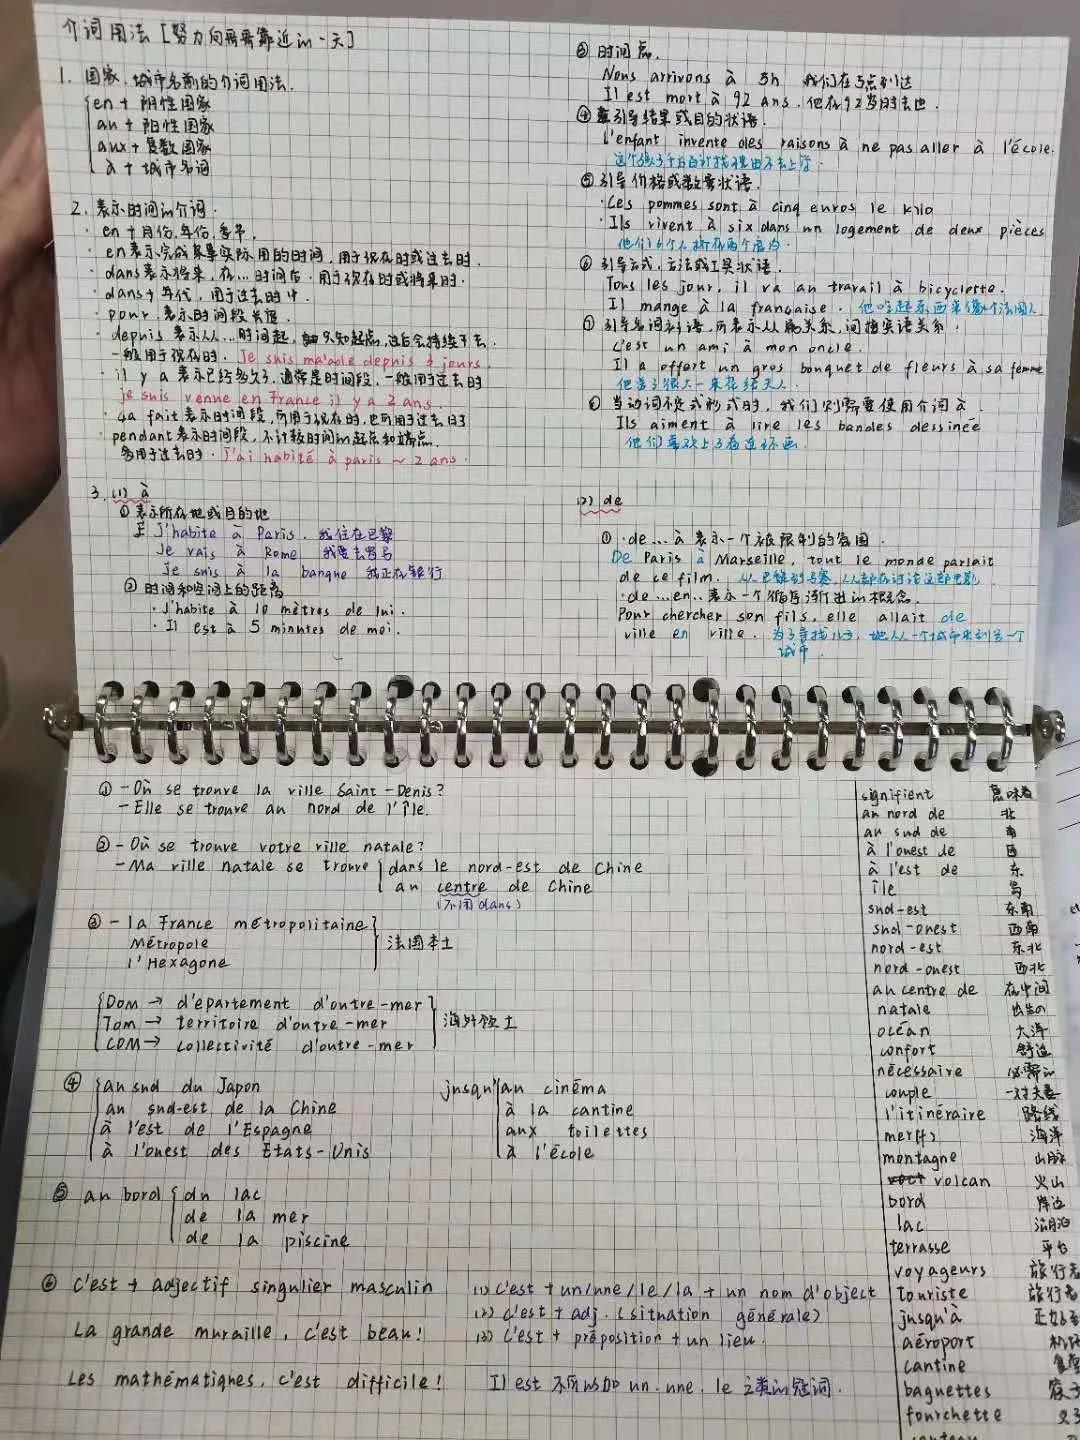 介词用法[努力向哥哥靠近的一天]
1. 国家、城市名前的介词用法.
en + 阴性国家
au + 阳性国家
aux + 复数国家
à + 城市名词
2. 表示时间的介词.
· en + 月份,年份,季节.
· en表示完成某事实际用的时间,用于现在时或过去时.
· dans表示将来,在...时间后.用于现在时或将来时.
· dans+年代,用于过去时中.
· pour 表示时间段长度
· depuis 表示从...时间起, 只知起点,
一般用于现在时. Je suis malade depuis 3 jours.
· il y a 表示已经多久了,通常是时间段,一般用于过去时
je suis venue en France il y a 2 ans.
· ça fait表示时间段,可用于现在时,也可用于过去时
· pendant表示时间段,不计较时间的起点和端点.
多用于过去时. J'ai habité à paris ~ 2 ans.
3. (1) à
① 表示所在地或目的地
J'habite à Paris. 我住在巴黎
Je vais à Rome 我要去罗马
Je suis à la banque 我正在银行
② 时间和空间上的距离
· J'habite à 10 mètres de lui.
· Il est à 5 minutes de moi.
③ 时间点.
Nous arrivons à 5h 我们在5点到达
Il est mort à 92 ans. 他在92岁时去世.
④ 引导结果或目的状语.
L'enfant invente des raisons à ne pas aller à l'école.
⑤ 引导价格或数量状语.
· Ces pommes sont à cinq euros le kilo
· Ils vivent à six dans un logement de deux pièces
他们6个人挤在两个房内.
⑥ 引导方式,方法或工具状语.
Tous les jour, il va au travail à bicyclette.
Il mange à la française. 他吃起东西来像个法国人
⑦ 引导名词补语,所表示从属关系,间接宾语关系.
C'est un ami à mon oncle.
Il a offert un gros bouquet de fleurs à sa femme
他送了很大一束花给夫人.
⑧ 当动词不定式形式时,我们则需要使用介词à.
Ils aiment à lire les bandes dessineé
他们喜欢上了看连环画.
(2) de
① ·de...à 表示一个被限制的范围.
De Paris à Marseille, tout le monde parlait
de ce film. 从巴黎到马赛,人人都在讨论这部电影
·de...en..表示一个循序渐进的概念.
Pour chercher son fils, elle allait de
ville en ville. 为了寻找儿子,她从一个城市来到另一个
城市.
① - Où se trouve la ville Saint-Denis?
- Elle se trouve au nord de l'île.
② - Où se trouve votre ville natale?
- Ma ville natale se trouve dans le nord-est de Chine
au centre de Chine
(不用dans)
③ - la France métropolitaine
Métropole
l'Hexagone
法国本土
DOM → d'épartement d'outre-mer
TOM → territoire d'outre-mer
COM → collectivité d'outre-mer
海外领土
④ au sud du Japon
au sud-est de la Chine
à l'est de l'Espagne
à l'ouest des États-Unis
jusqu' au cinéma
à la cantine
aux toilettes
à l'école
⑤ au bord du lac
de la mer
de la piscine
⑥ C'est + adjectif singulier masculin
La grande muraille, c'est beau!
Les mathématiques, c'est difficile!
(1) C'est + un/une/le/la + un nom d'object
(2) C'est + adj. (situation générale)
(3) C'est + préposition + un lieu.
Il est 不可以加 un. une. le 之类的冠词.
signifient 意味着
au nord de 北
au sud de 南
à l'ouest de 西
à l'est de 东
île 岛
sud-est 东南
sud-ouest 西南
nord-est 东北
nord-ouest 西北
au centre de 在中间
natale 出生的
océan 大洋
confort 舒适
nécessaire 必需的
couple 一对夫妻
l'itinéraire 路线
mer(f) 海洋
montagne 山脉
volcan 火山
bord 岸边
lac 湖泊
terrasse 平台
voyageurs 旅行者
touriste 旅行者
jusqu'à
aéroport 机场
cantine 食堂
baguettes
fourchette